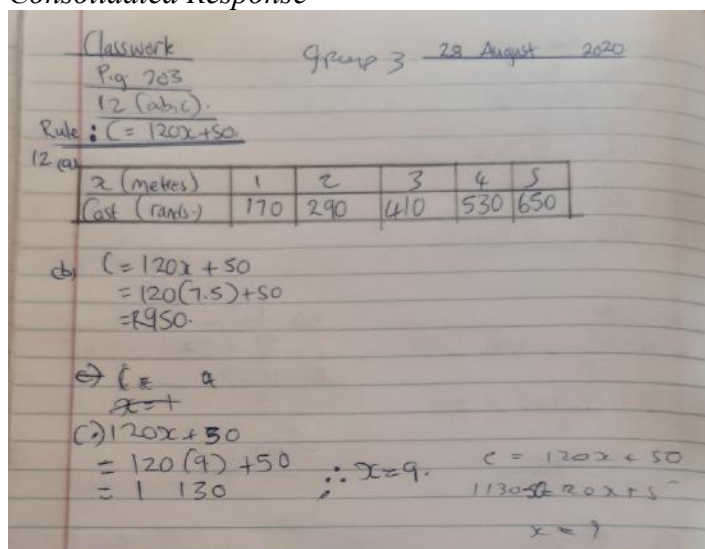 Consolidated Response
Classwork group 3 28 August 2020
Pg. 203
12 (a,b,c).
Rule : C = 120x+50.
12 (a)
x (metres) 1 2 3 4 5
Cost (rands.) 170 290 410 530 650
(b) C = 120x + 50
= 120(7.5)+50
=R950.
c) C = 9
x = 1
(c.) 120x + 50
= 120(9) +50 ∴ x=9. C = 120x + 50
= 1 130 1130-50 = 120x+5
x = 9